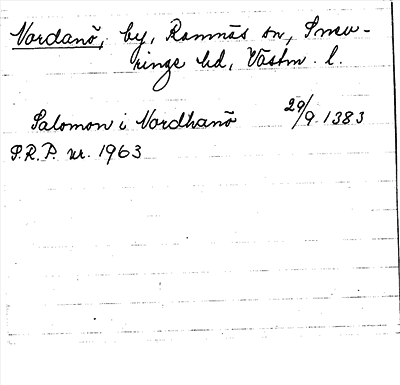 Nordanö, by, Ramnäs sn, Snevringe hd, Västm. l.
Salomon i Nordhanö 29/9 1383
S.R.P. nr. 1963